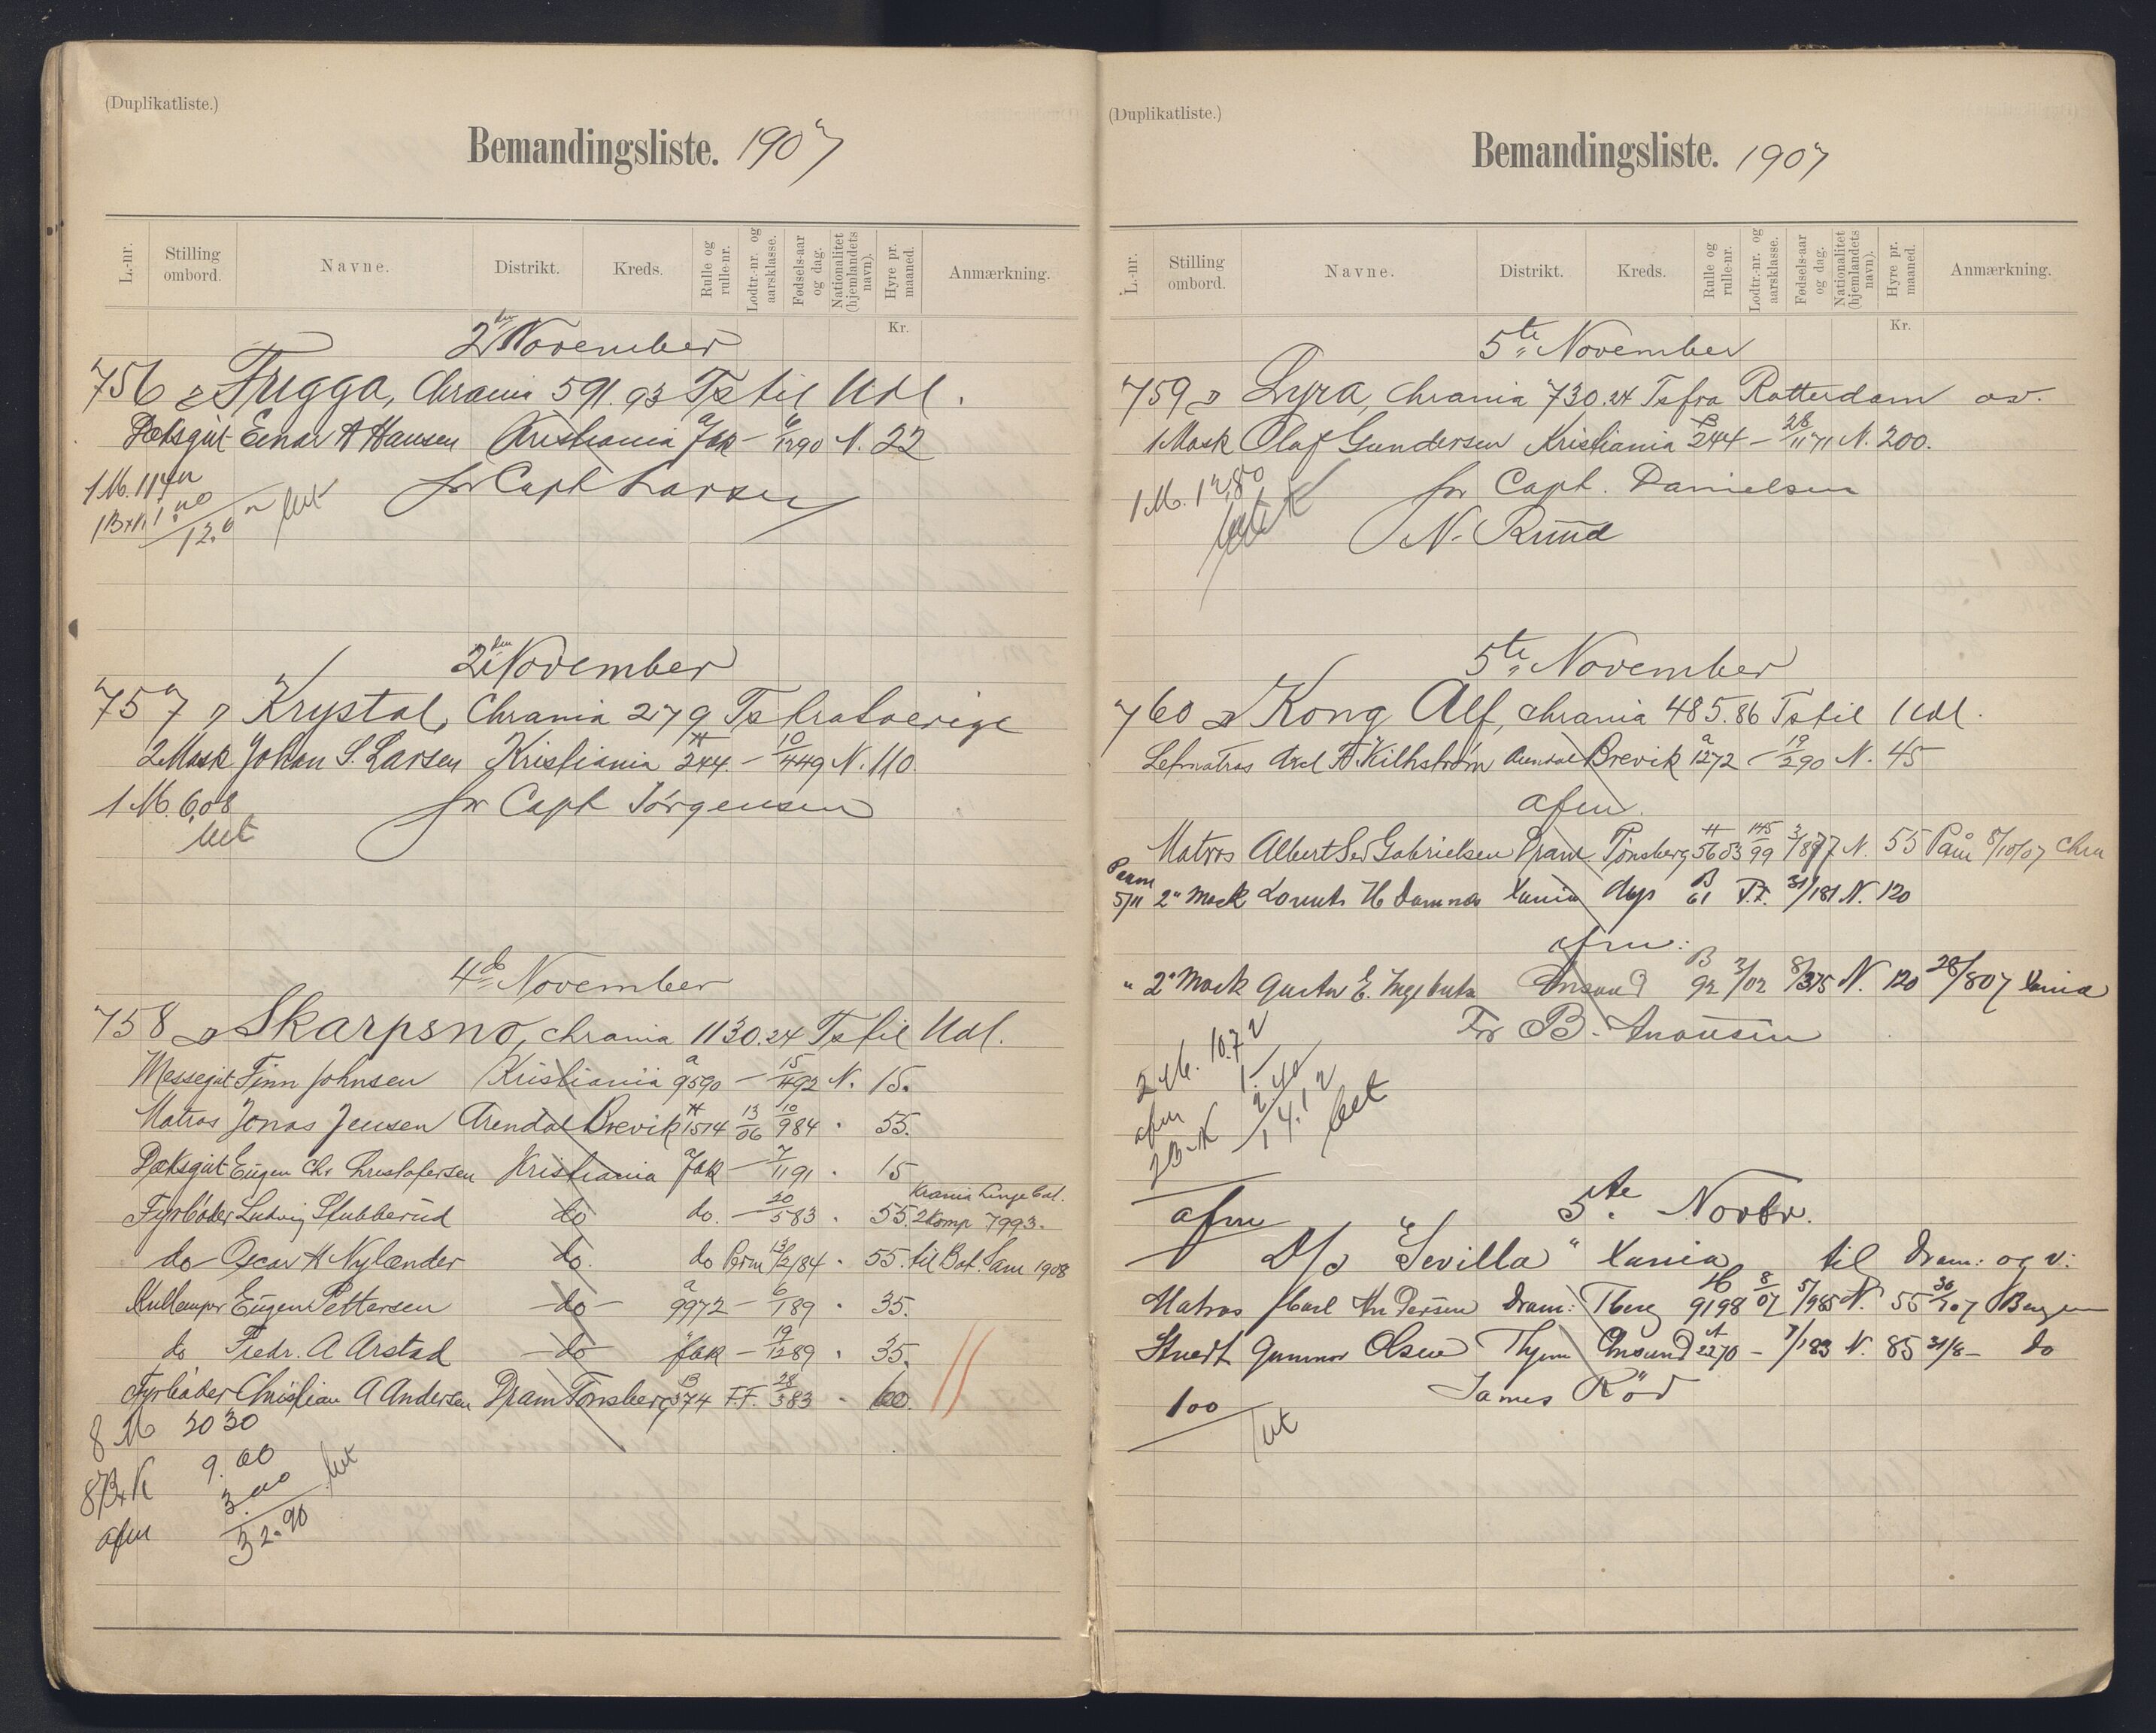 (Duplikatliste.)
Bemandingsliste. 1907
L.-nr. Stilling ombord. Navne. Distrikt. Kreds. Rulle og rulle-nr. Lodtr.-nr. og aarsklasse. Fødsels-aar og dag. Nationalitet (hjemlandets navn). Hyre pr. maaned. Anmærkning.
Kr.
2den November
756 Frigga, Chrania 591.93 Ts til Udl.
Dæksgut Einar A Hansen Kristiania a Jak – 6/12 90 N. 22
for Capt Larsen
1 M. 11
12.
2den November
757 Krystal, Chrania 279 Ts fra Sverige
2 Mask Johan S. Larsen Kristiania 244. – 10/4 49 N. 110.
1 M. 6,08 for Capt Jörgensen
bet
4de November
758 Skarpsno, Chrania 1130.24 Ts til Udl.
Messegut Finn Johnsen Kristiania a 9590 – 15/4 92 N. 15.
Matros Jonas Jensen Arendal Brevik 1514 13/06 10/9 84 " 55.
Dæksgut Eugen Chr Christofersen Kristiania a Jak – 7/11 91 " 15
Krania Linge Bat.
Fyrböder Ludvig Stubberud do do. – 20/5 83 " 55. 2 Komp 7993.
do Oscar A Nylænder do. do 13/2 84 " 55. til Bat. Sam 1908
Kullemper Eugen Pettersen do a 9972 – 6/1 89 " 35.
do Fredr. A Arstad do Jak – 19/12 89 " 35.
Fyrböder Christian A Andersen Dram Tönsberg B 374 F.F. 28/3 83 " 60.
8 M 20 30
8 B+K 9.00
3.00 bet
afm 32.90
(Duplikatliste.)
Bemandingsliste. 1907
L.-nr. Stilling ombord. Navne. Distrikt. Kreds. Rulle og rulle-nr. Lodtr.-nr. og aarsklasse. Fødsels-aar og dag. Nationalitet (hjemlandets navn). Hyre pr. maaned. Anmærkning.
Kr.
5te November
759 Lyra, Chrania 730.24 Ts fra Rotterdam
1 Mask Olaf Gundersen Kristiania 244 – 28/11 71 N. 200.
1 M. 12,80 for Capt. Danielsen
bet N. Ruud
5te November
760 Kong Alf, Chrania 485.86 Ts til Udl.
Letmatros Axel F. Kilhström Arendal Brevik a 1272 – 19/2 90 N. 45
afm.
Matros Albert Gabrielsen Dram Tönsberg 5603 145/99 N. 55 Påm 8/10/07 Chra
Paam
5/11 2" Mask Xania B 61 F.F. 31/1 81 N. 120
afm:
" 2" Mask Gustav E. B 92 3/02 8/3 75 N. 120 28/8 07 Xania
For B.
2 M. 10.72
afm 1.
2 B-K 2.40
14.12
bet
afm 5te Novbr.
D/s "Sevilla" Xania til Dram: og v:
Matros Carl Andersen Dram: Tberg 9198 8/07 5/9 85 N. 55 30/7 07 Bergen
Stuert Gunnar Olsen 2270 – 7/1 83 N. 85 31/8 – do
100 James Röd
bet